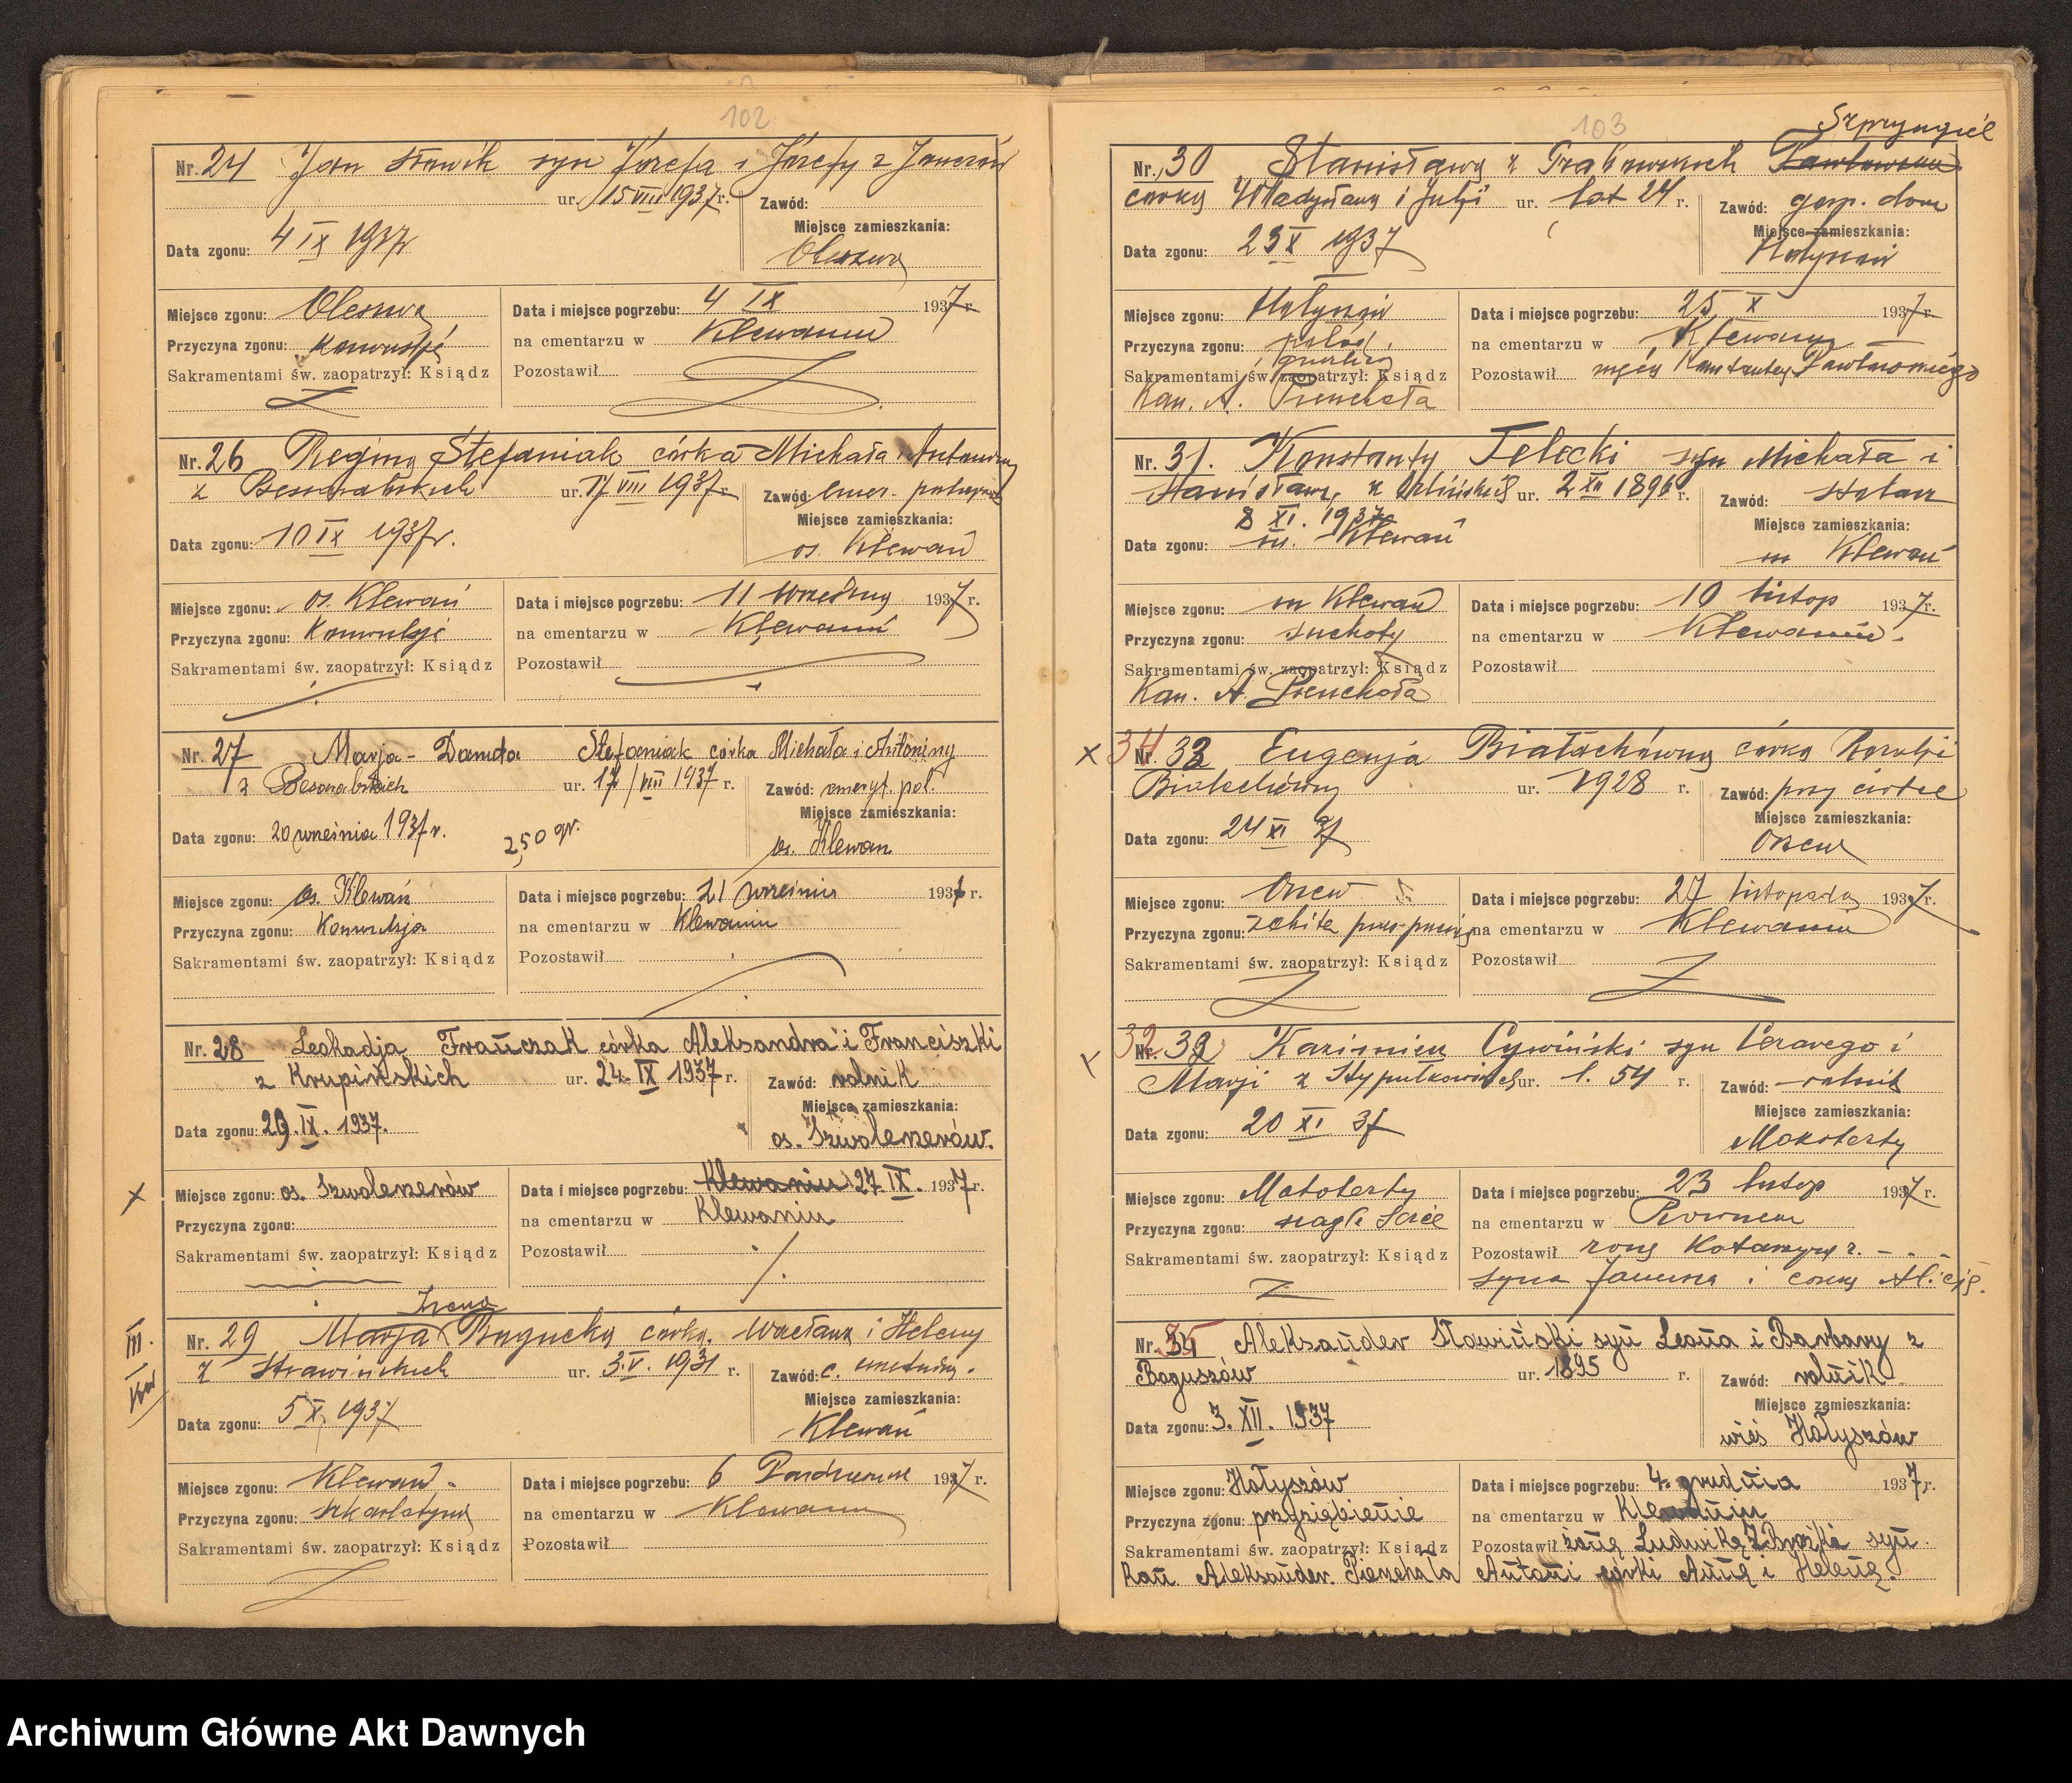 102
Nr. 24 Jan Sławik syn Józefa i Józefy z
ur. 15 VIII 1937 r. Zawód:
Miejsce zamieszkania:
Data zgonu: 4 IX 1937 r
Oleszwa
Miejsce zgonu: Oleszwa
Data i miejsce pogrzebu: 4 IX 1937 r.
Przyczyna zgonu: Konwulsje
na cmentarzu w Klewaniu
Sakramentami św. zaopatrzył: Ksiądz
Pozostawił
Nr. 26 Regina Stefaniak córka Michała i Antoniny
z ur. 17 VIII 1937 r. Zawód: emer.
Miejsce zamieszkania:
Data zgonu: 10 IX 1937 r.
os. Klewań
Miejsce zgonu: os. Klewań
Data i miejsce pogrzebu: 11 września 1937 r.
Przyczyna zgonu: Konwulsje
na cmentarzu w Klewaniu
Sakramentami św. zaopatrzył: Ksiądz
Pozostawił
Nr. 27 Marja-Danuta Stefaniak córka Michała i Antoniny
z Besarabskich ur. 17/VIII 1937 r. Zawód: emeryt. pol.
Miejsce zamieszkania:
Data zgonu: 20 września 1937 r. 2,50 gr.
os. Klewan
Miejsce zgonu: os. Klewań
Data i miejsce pogrzebu: 21 wrzesnia 1937 r.
Przyczyna zgonu: Konwulsja
na cmentarzu w Klewaniu
Sakramentami św. zaopatrzył: Ksiądz
Pozostawił
Nr. 28 Leokadja Frańczak córka Aleksandra i Franciszki
z Krupińskich ur. 24 IX 1937 r. Zawód: rolnik
Miejsce zamieszkania:
Data zgonu: 29. IX. 1937.
os. Szwoleżerów.
x
Miejsce zgonu: os. Szwoleżerów
Data i miejsce pogrzebu: Klewaniu 27. IX. 1937 r.
Przyczyna zgonu:
na cmentarzu w Klewaniu
Sakramentami św. zaopatrzył: Ksiądz
Pozostawił
Irena
III.
Nr. 29 Marja Bagucka córka Wacława i Heleny
z Strawińskich ur. 3. V. 1931 r. Zawód: c.
Miejsce zamieszkania:
Data zgonu: 5 X 1937
Klewań
Miejsce zgonu: Klewań
Data i miejsce pogrzebu: 6 Października 1937 r.
Przyczyna zgonu: szkarlatyna
na cmentarzu w Klewaniu
Sakramentami św. zaopatrzył: Ksiądz
Pozostawił
103
Szpryngiel
Nr. 30 Stanisława z Grabowskich
córka Władysława i Julji ur. lat 24 r. Zawód: gosp. dom
Miejsce zamieszkania:
Data zgonu: 23 X 1937
Miejsce zgonu:
Data i miejsce pogrzebu: 25 X 1937 r.
Przyczyna zgonu: połóg i gruźlica
na cmentarzu w Klewaniu
Sakramentami św. zaopatrzył: Ksiądz
Pozostawił męża Konstantego
Kan. A. Pienchała
Nr. 31. Konstanty Telecki syn Michała i
Stanisławy z ur. 2 XII 1896 r. Zawód: stolarz
8 XI. 1937
Miejsce zamieszkania:
Data zgonu: m. Klewań
m Klewań
Miejsce zgonu: m Klewań
Data i miejsce pogrzebu: 10 listop 1937 r.
Przyczyna zgonu: suchoty
na cmentarzu w Klewaniu.
Sakramentami św. zaopatrzył: Ksiądz
Pozostawił
Kan. A. Pienchała
x 34
Nr. 33 Eugenja Białachówna córka Rozalji
Białachówny ur. 1928 r. Zawód: przy ciotce
Miejsce zamieszkania:
Data zgonu: 24 XI 37
Orzew
Miejsce zgonu: Orzew
Data i miejsce pogrzebu: 27 listopada 1937 r.
Przyczyna zgonu: zabita przez
na cmentarzu w Klewaniu
Sakramentami św. zaopatrzył: Ksiądz
Pozostawił
32
Nr. 32 Kazimierz Cywiński syn Cezarego i
Marji z Stypułkowskich ur. l. 54 r. Zawód: rolnik
Miejsce zamieszkania:
Data zgonu: 20 XI 37
Mokoterty
Miejsce zgonu: Mototerty
Data i miejsce pogrzebu: 23 listop 1937 r.
Przyczyna zgonu: nagle
na cmentarzu w Rownem
Sakramentami św. zaopatrzył: Ksiądz
Pozostawił żonę Katarzynę
syna Janusza i córkę Alicję.
Nr. 35 Aleksander Słowiński syn Leona i Barbary z
Boguszów ur. 1895 r. Zawód: rolnik
Miejsce zamieszkania:
Data zgonu: 3. XII. 1937
wieś Hołyszów
Miejsce zgonu: Hołyszów
Data i miejsce pogrzebu: 4. grudnia 1937 r.
Przyczyna zgonu: przyziębienie
na cmentarzu w Klewaniu
Sakramentami św. zaopatrzył: Ksiądz
Pozostawił żonę Ludwikę syn.
Kan. Aleksander Pienchała
Antoni córki Annę i Helenę.
Archiwum Główne Akt Dawnych